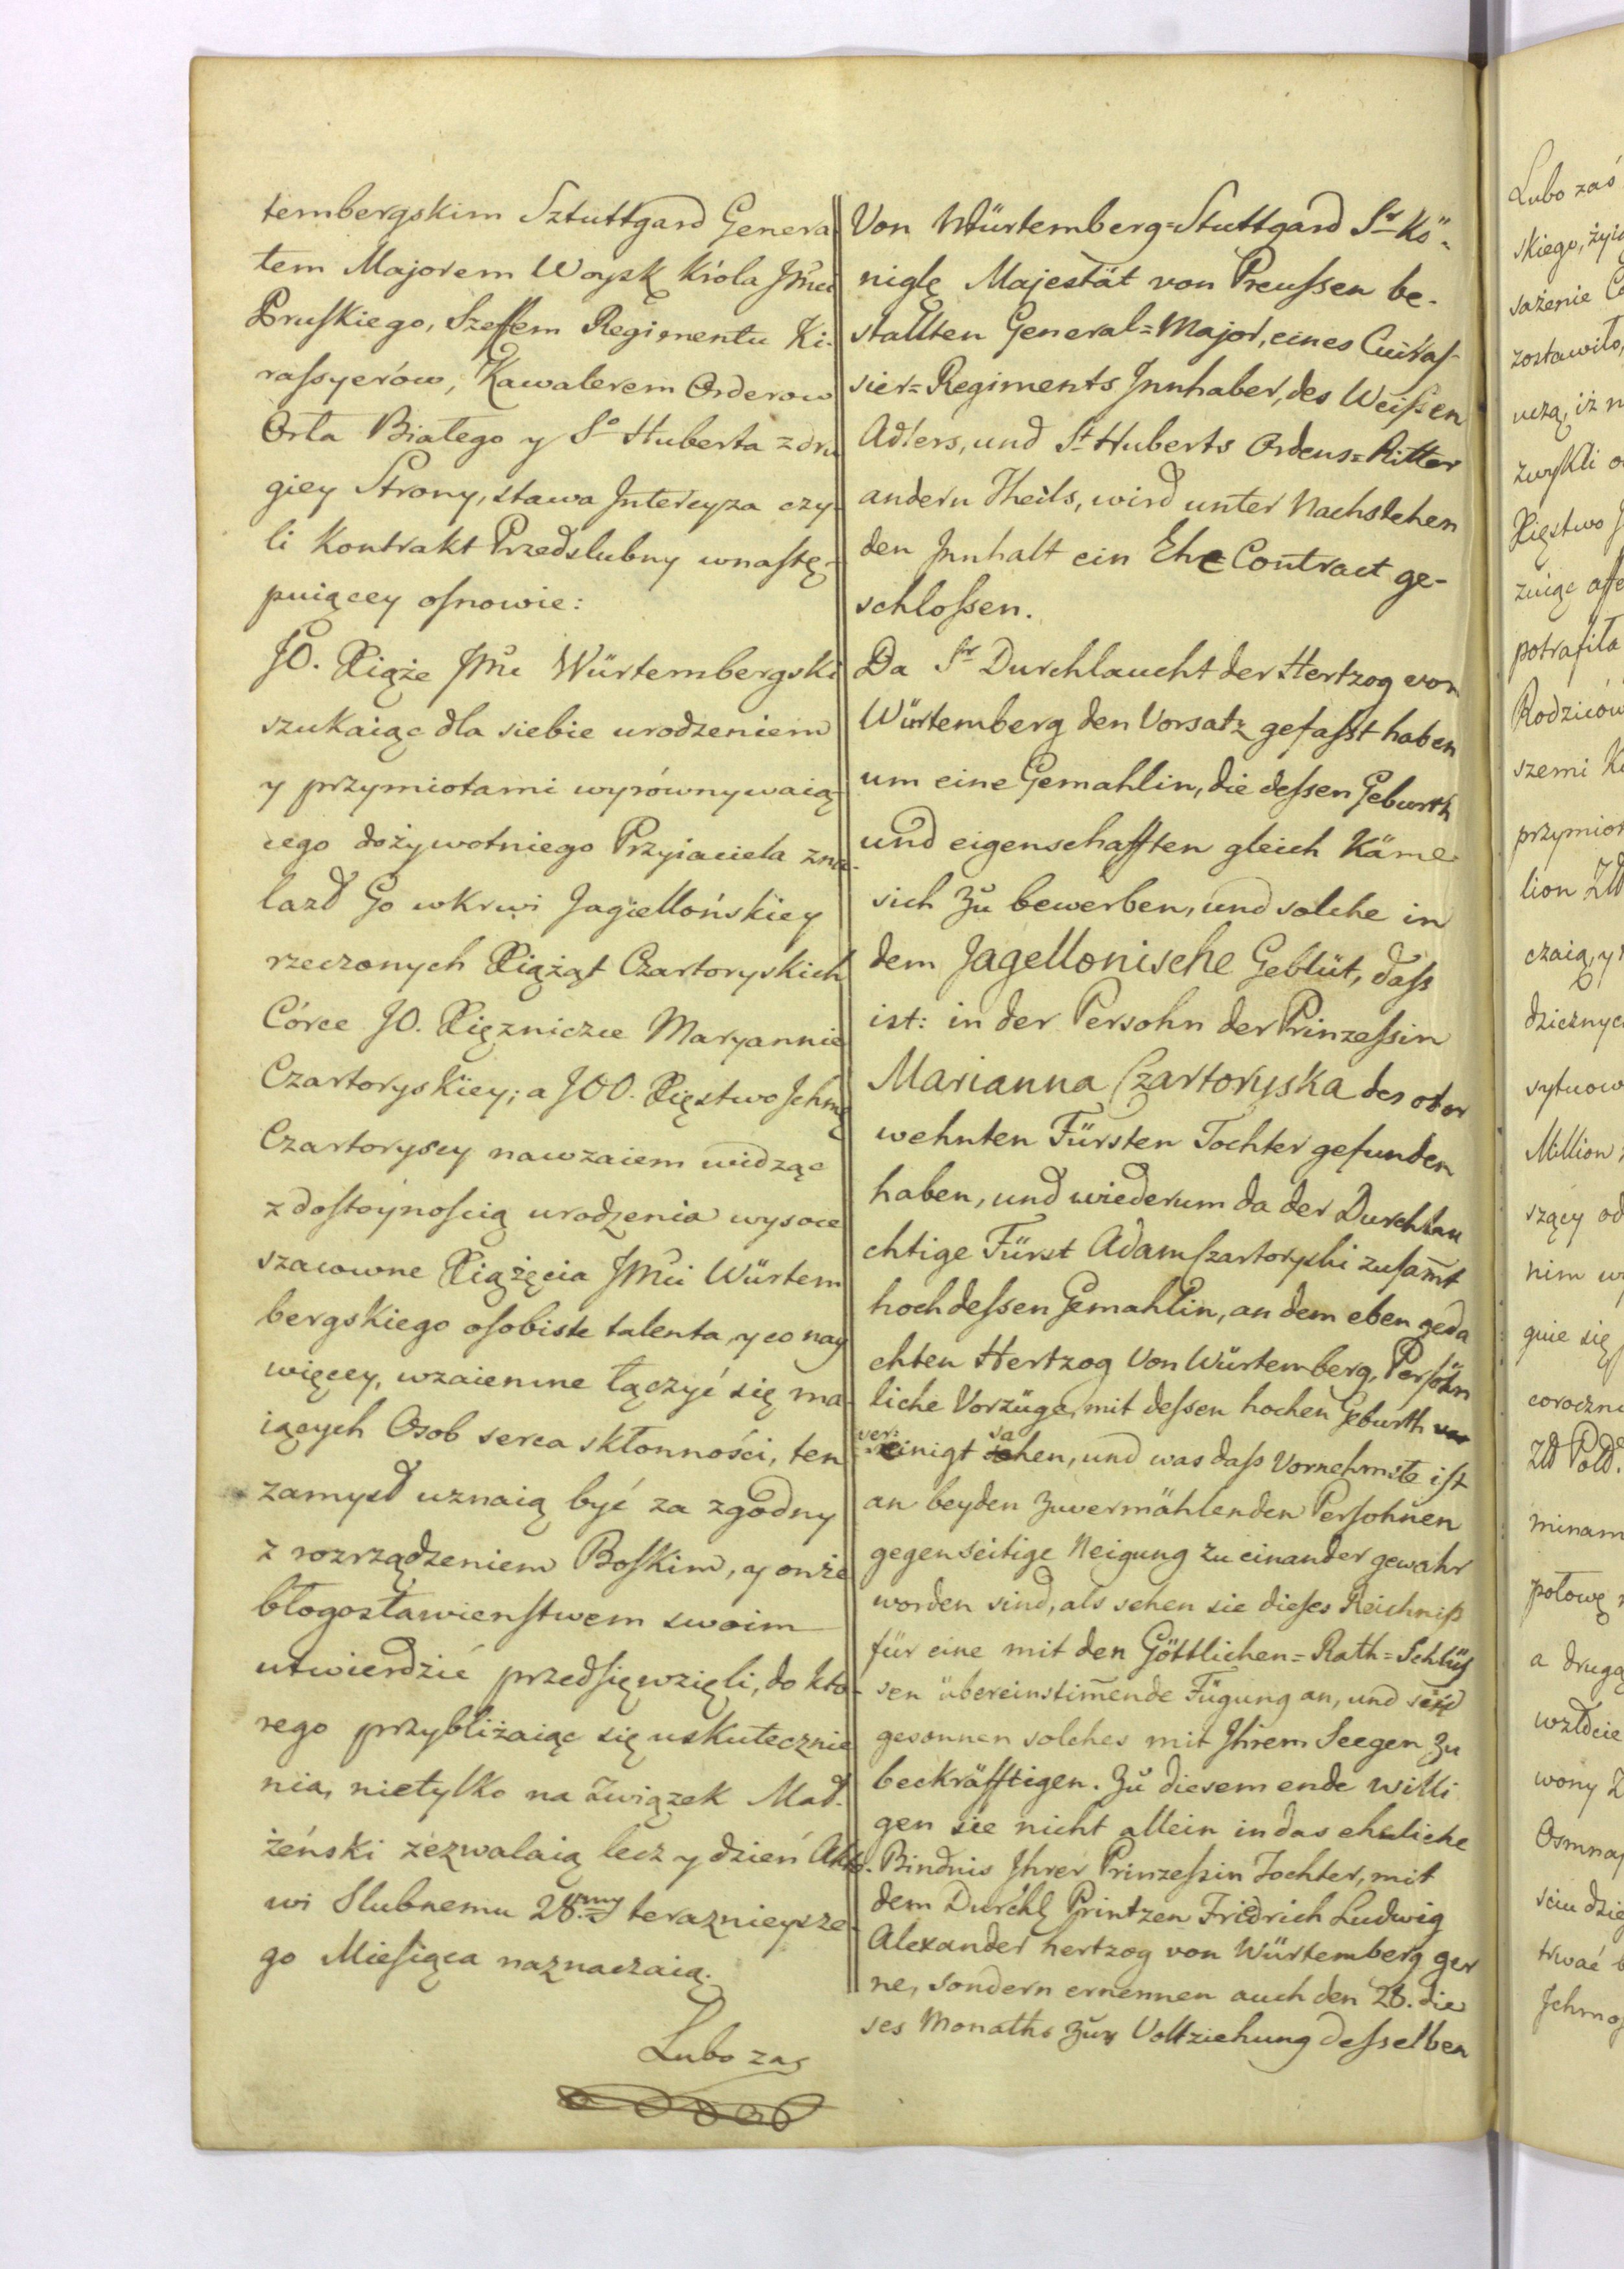 tembergskim Sztuttgard Genera
łem Majorem Woysk Króla Jmci
Pruskiego, Szeffem Regimentu Ki-
rassyerów, Kawalerem Orderow
Orła Białego y So Huberta z dru
giey Strony, stawa Intercyza czy-
li Kontrakt Przedslubny wnastę-
puiącey osnowie:
JO. Xiąże Jmć Würtembergski
szukaiąc dla siebie urodzeniem
y przymiotami wyrównywaią
cego dożywotniego Przyiaciela zna-
lazł Go wkrwi Jagiellońskiey
rzeczonych Xiążąt Czartoryskich
Córce JO. Xiężniczce Maryannie
Czartoryskiey; a JOO. Xięstwo Jchmć
Czartoryscy nawzaiem widząc
z dostoynością urodzenia wysoce
szacowne Xiążęcia Jmci Würtem
bergskiego osobiste talenta, y co nay
więcey, wzaiemne łączyć się ma-
iących Osob serca skłonności, ten
zamysł uznaią być za zgodny
z rozrządzeniem Boskim, y onże
błogosławieństwem swoim
utwierdzić przedsięwzięli, do któ-
rego przybliżaiąc się uskutecznie
nia, nietylko na Związek Mał-
żeński zezwalaią lecz y dzień Akto-
wi Slubnemu 28.my teraznieysze-
go Miesiąca naznaczaią.
Lubo zas
Von Würtemberg=Stuttgard Sr Kö-
niglę Majestät von Preussen be-
stallten General=Major, eines Cuiras-
sier=Regiments Innhaber, des Weissen
Adlers, und St Huberts Ordens=Ritter
andern Theils, wird unter Nachstehen
den Innhalt ein Ehe Contract ge-
schlossen.
Da Sr Durchlaucht der Hertzog von
Würtemberg den Vorsatz gefasst haben
um eine Gemahlin, die dessen Geburth
und eigenschafften gleich Käme
sich zu bewerben, und solche in
dem Jagellonische Geblüt, dass
ist: in der Persohn der Prinzessin
Marianna Czartoryska des ober
wehnten Fürsten Tochter gefunden
haben, und wiederum da der Durchlau
chtige Fürst Adam Czartoryski zusam̄t
hochdessen Gemahlin, an dem eben geda
chten Hertzog Von Würtemberg, Persöhn
liche Vorzüge, mit dessen hochen Geburth
ver: einigt sahen, und was dass Vornehmste ist
an beyden zuvermählenden Persohnen
gegenseitige Neigung zu einander gewahr
worden sind, als sehen sie dieses
für eine mit den Göttlichen=Rath=Schlüs
sen übereinstim̄ende Fügung an, und sind
gesonnen solches mit Ihrem Seegen zu
beckräfftigen. Zu diesem ende willi
gen sie nicht allein in das eheliche
Bindnis Ihrer Prinzessin Tochter, mit
dem Durchl Printzen Fridrich Ludwig
Alexander hertzog von Würtemberg ger
ne, sondern ernennen auch den 28. die
ses Monaths zur Vollziehung desselben
Lubo zaś
skiego, życ
sażenie
zostawiło,
uczą, iż
zwykli
Xięstwo
potrafiła
Rodziców
szemi
przymiot
lion
czaią, y
dziczny
sytuow
Million
szący od
nim
guie się
coroczni
minam
połowę
a drugą
wzłcie
wony
Osmna
sciu dzie
trwać
Jchmo